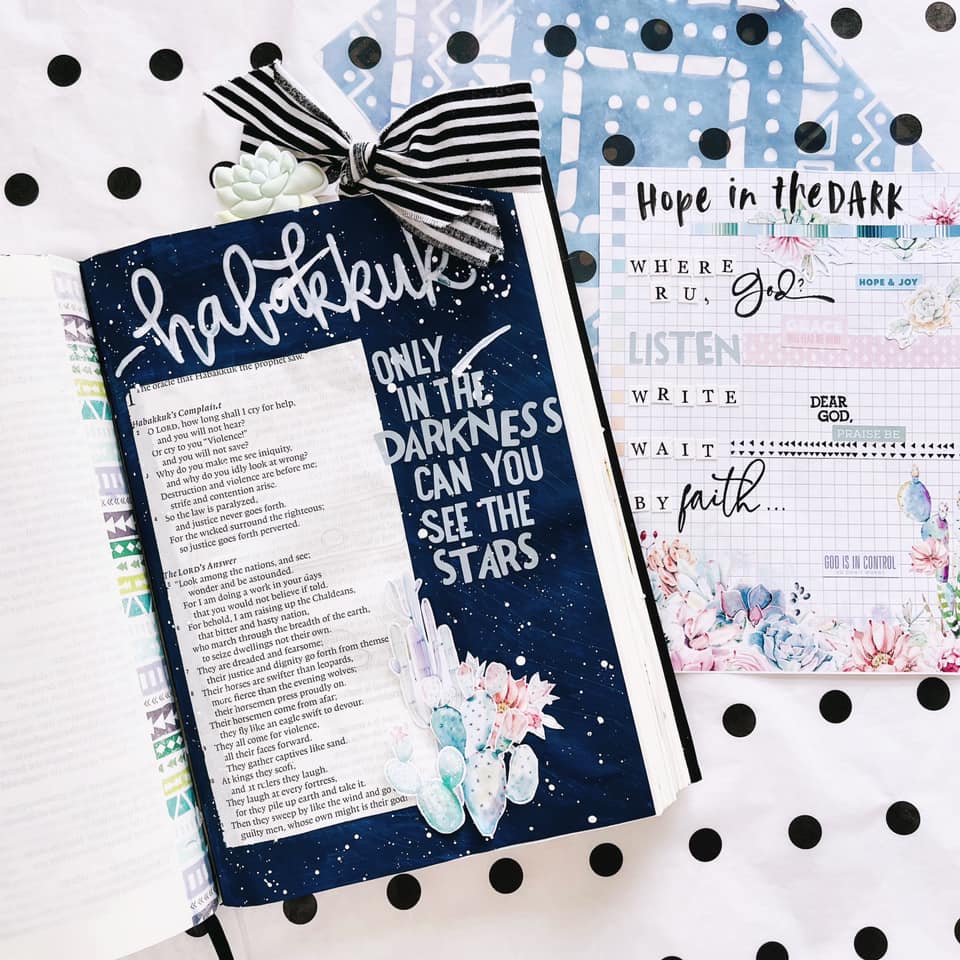 habakkuk
The oracle that Habakkuk the prophet saw.
Habakkuk's Complaint
2 O LORD, how long shall I cry for help,
and you will not hear?
Or cry to you "Violence!"
and you will not save?
3 Why do you make me see iniquity,
and why do you idly look at wrong?
Destruction and violence are before me;
strife and contention arise.
4 So the law is paralyzed,
and justice never goes forth.
For the wicked surround the righteous;
so justice goes forth perverted.
The LORD's Answer
5 "Look among the nations, and see;
wonder and be astounded.
For I am doing a work in your days
that you would not believe if told.
6 For behold, I am raising up the Chaldeans,
that bitter and hasty nation,
who march through the breadth of the earth,
to seize dwellings not their own.
7 They are dreaded and fearsome;
their justice and dignity go forth from themse
8 Their horses are swifter than leopards,
more fierce than the evening wolves;
their horsemen press proudly on.
Their horsemen come from afar;
they fly like an eagle swift to devour.
9 They all come for violence,
all their faces forward.
They gather captives like sand.
10 At kings they scoff,
and at rulers they laugh.
They laugh at every fortress,
for they pile up earth and take it.
11 Then they sweep by like the wind and go
guilty men, whose own might is their god!
ONLY
IN THE
DARKNESS
CAN YOU
SEE THE
STARS
Hope in the DARK
WHERE
R U, God?
HOPE & JOY
GRACE
LISTEN
WRITE
DEAR
GOD,
PRAISE BE
WAIT
BY faith...
GOD IS IN CONTROL